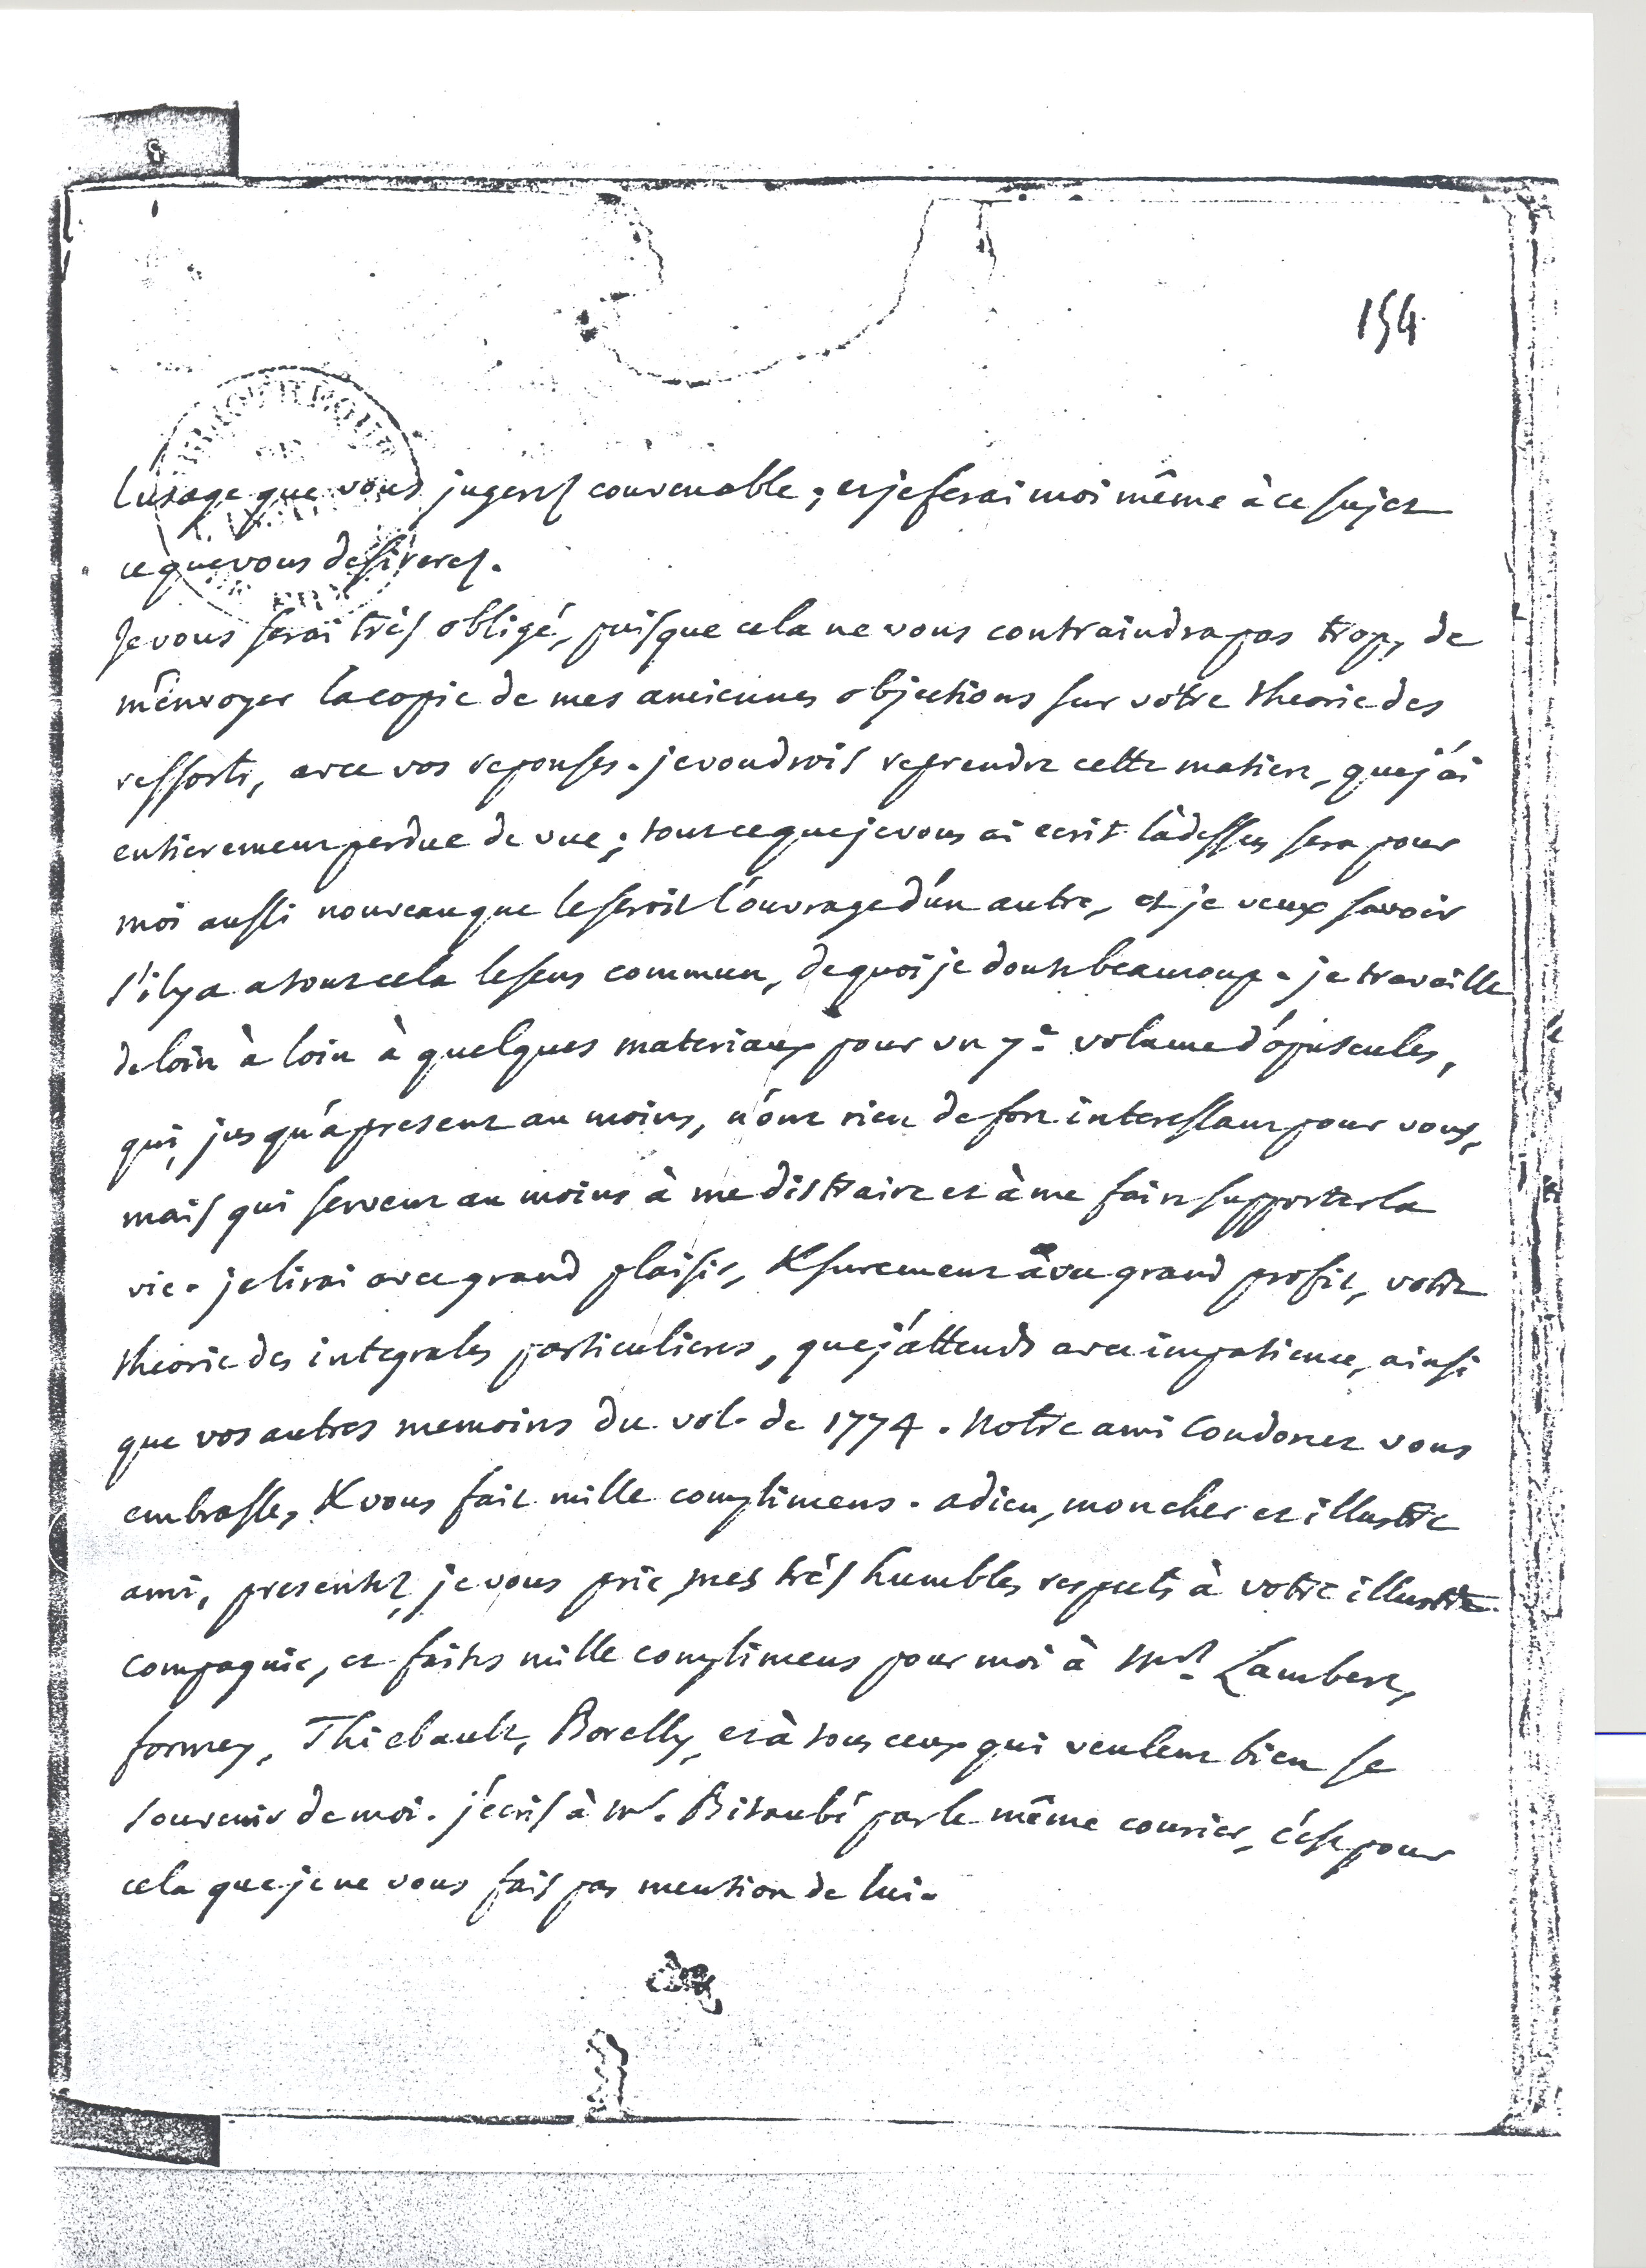 8
154
BIBLIOTHEQUE
DE
l'usage que vous jugerez convenable ; et je ferai moi même à ce sujet
ce que vous desirerez.
Je vous serai très obligé, puisque cela ne vous contraindra pas trop, de
m'envoyer la copie de mes anciennes objections sur vôtre theorie des
ressorts, avec vos reponses. je voudrois reprendre cette matiere, que j'ai
entierement perdue de vue ; tout ce que je vous ai ecrit làdessus sera pour
moi aussi nouveau que le seroit l'ouvrage d'un autre, et je veux savoir
s'il y a a tout cela le sens commun, de quoi je doute beaucoup. je travaille
de loin à loin à quelques materiaux pour un 7e volume d'opuscules,
qui, jusqu'à present au moins, n'ont rien de fort interessant pour vous,
mais qui servent au moins à me distraire et à me faire supporter la
vie. je lirai avec grand plaisir, & surement avec grand profit, votre
theorie des integrales particulieres, que j'attends avec impatience, ainsi
que vos autres memoires du vol. de 1774. notre ami Condorcet vous
embrasse, & vous fait mille complimens. adieu, mon cher et illustre
ami, presentez, je vous prie, mes très humbles respects à votre illustre
compagnie, et faites mille complimens pour moi à Mrs Lambert,
formey, Thiebault, Borelly, et à tous ceux qui veulent bien se
souvenir de moi. j'écris à Mr. Bitaubé par le même courier, c'est pour
cela que je ne vous fais pas mention de lui.